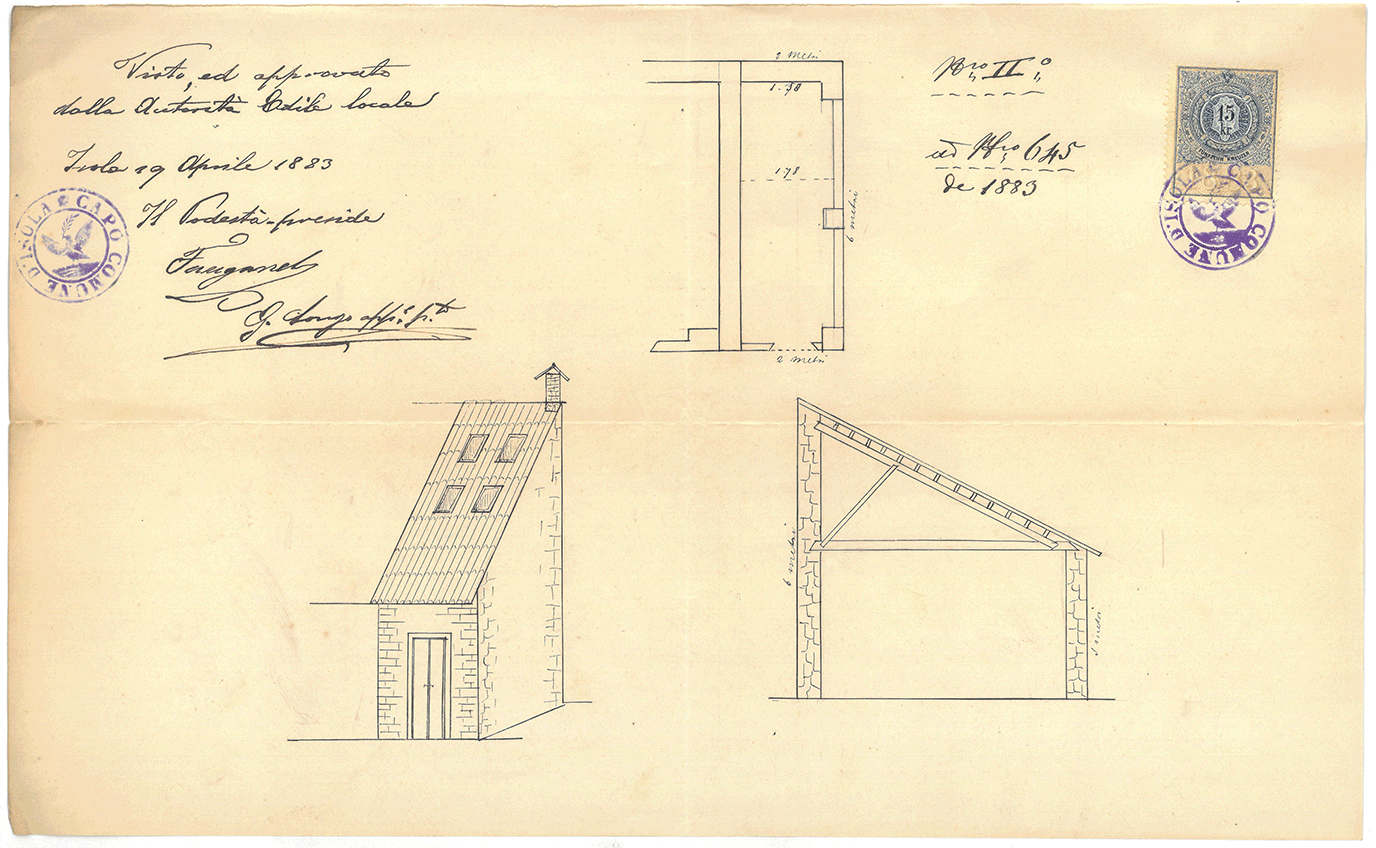 Visto, ed approvato
dalla Autorità Edile locale
Isola 19 Aprile 1883
Il Podestà-preside
CAPO COMUNE D'ISOLA
2 Metri
1.50
1.78
6 metri
2 Metri
Nro II°
ad Nro 645
de 1883
15
kr.
CAPO COMUNE D'ISOLA
6 metri
3 metri